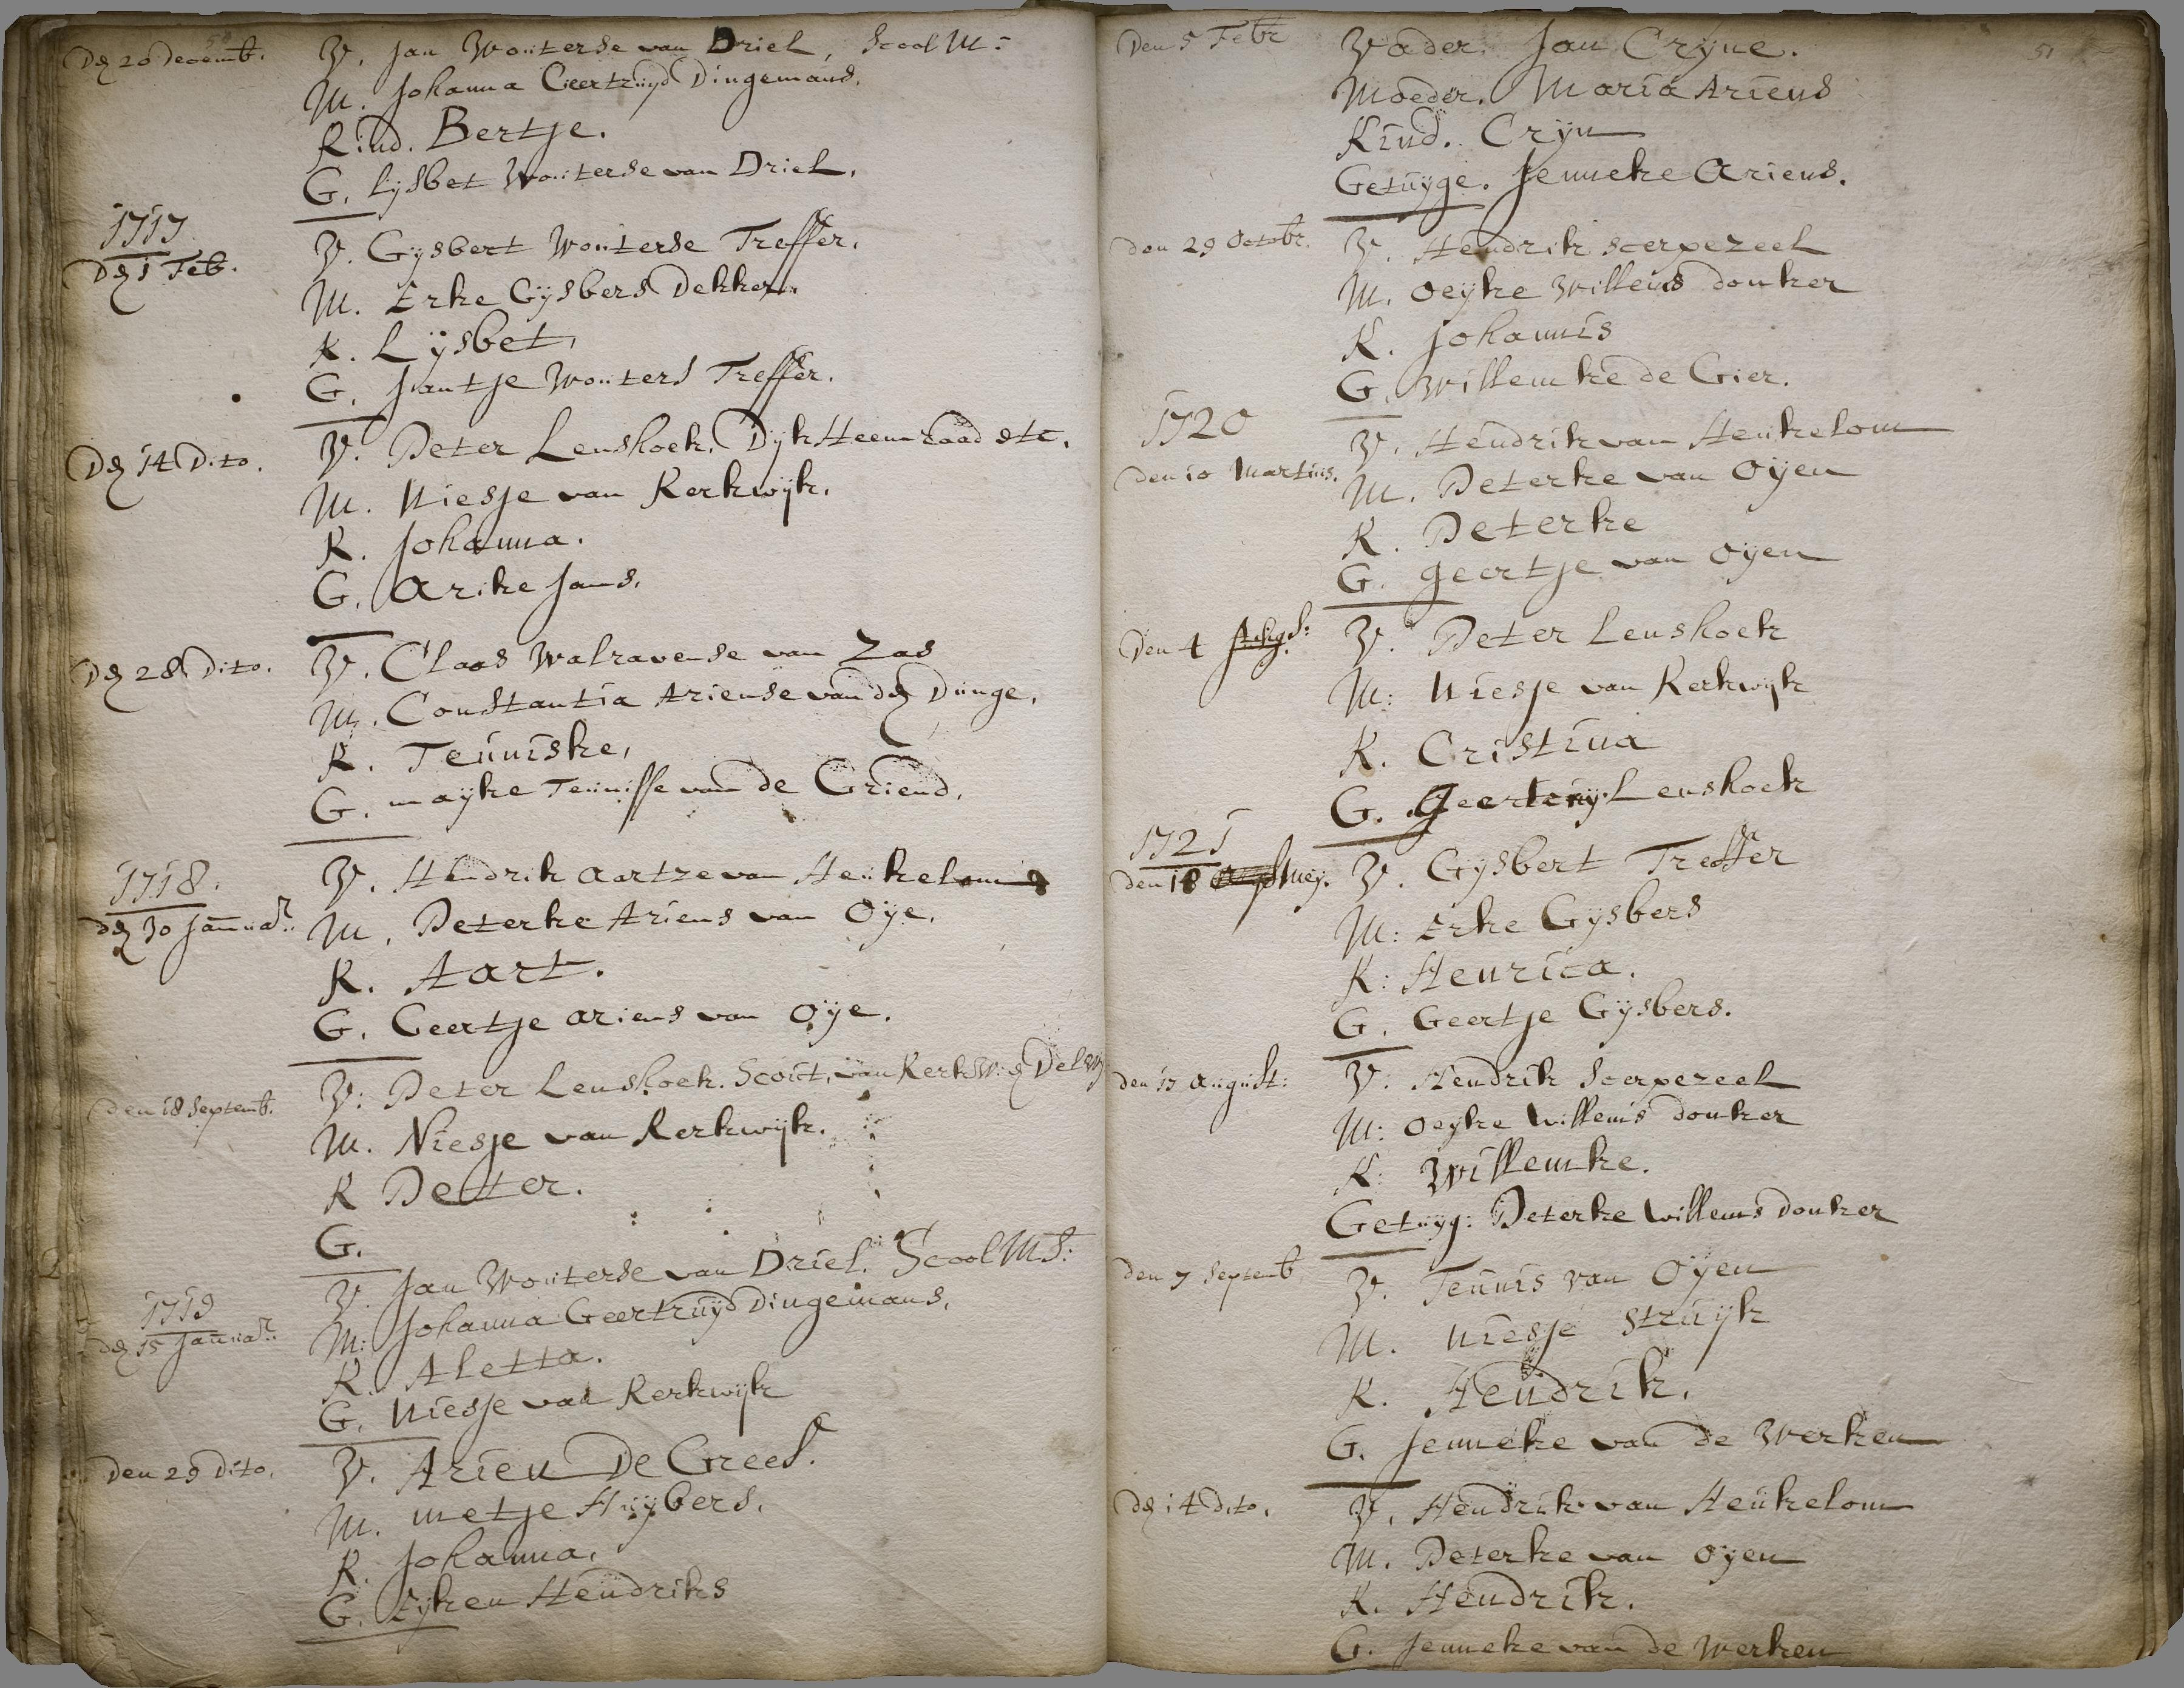 50
Den 20 Decemb.
V. Jan Wouterse van Driel, Scool M:
M. Johanna Geertruÿd Dingemans.
Kind. Bertje.
G. Lijsbet Wouterse van Driel.
1717
Den 1 Feb.
V. Gijsbert Wouterse Treffer.
M. Erke Gijsbers Dekker.
K. Lijsbet,
G. Jantje Wouters Treffer.
Den 14 Dito.
V. Peter Lenshoek, Dijk Heemraad etc.
M. Niesje van Kerkwijk.
K. Johanna.
G. Arike Jans.
Den 28 Dito.
V. Claas Walravense van Zas
M. Constantia Ariense van den Dunge.
K. Teuniske,
G. maÿke Teunisse van de Griend.
1718.
den 30 Januar:
V. Hendrik Aartze van Heukelom
M. Peterke Ariens van Oÿe.
K. Aart.
G. Geertje Ariens van Oÿe.
den 18 Septemb.
V: Peter Lenshoek. Scout, van Kerkw: en Delw
M. Niesje van Kerkwijk.
K Petter.
G.
1719
den 15 Januar:
V. Jan Wouterse van Driel. Scool Mr:
M: Johanna Geertruÿd Dingemans.
K. Aletta.
G. Niesje van Kerkwijk
Den 29 Dito.
V. Arien De Greef.
M. metje Huÿbers.
K. Johanna.
G. Eijken Hendriks
51
Den 5 Febr
Vader. Jan Crÿne.
Moeder. Maria Ariens
Kind. Crÿn
Getuÿge. Jenneke Ariens.
den 29 Octobr.
V. Hendrik scerpezeel
M. Oeÿke Willems donker
K. Johannis
G. Willemke de Gier.
1720
den 10 Martius.
V. Hendrik van Heukelom
M. Peterke van Oÿen
K. Peterke
G. geertje van Oÿen
Den 4
V. Peter Lenshoek
M: Niesje van Kerkwijk
K. Cristina
G. Lenshoek
1721
den 18 Meÿ.
V. Gÿsbert Treffer
M: Erke Gÿsbers
K: Henrica.
G. Geertje Gÿsbers.
den 17 August:
V: Hendrik Scerpezeel
M: Oeÿke Willems donker
K: Willemke.
Getuÿg: Peterke Willems donker
den 7 Septemb
V. Teunis van Oÿen
M. Niesje Struÿk
K. Hendrik.
G. Jenneke van de Werken
den 14 dito.
V. Hendrik van Heukelom
M. Peterke van Oÿen
K. Hendrik.
G. Jenneke van de Werken